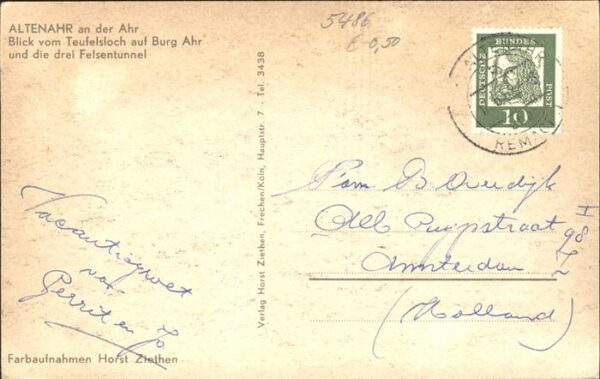 ALTENAHR an der Ahr
Blick vom Teufelsloch auf Burg Ahr
und die drei Felsentunnel
5486
€ 0,50
DEUTSCHE BUNDES POST
10
REM
Verlag Horst Ziethen, Frechen/Köln, Hauptstr. 7 - Tel. 3438
Vacantiegroet
van
Gerrit en Jo
Fam B Overdijk
Alb Cuypstraat
98
I
Amsterdam Z
(Holland)
Farbaufnahmen Horst Ziethen